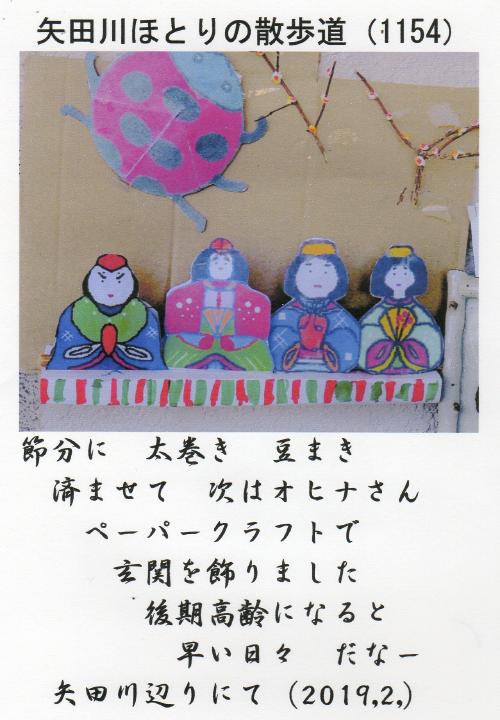 矢田川ほとりの散歩道（1154）
節分に　太巻き　豆まき
済ませて　次はオヒナさん
ペーパークラフトで
玄関を飾りました
後期高齢になると
早い日々　だなー
矢田川辺りにて（2019,2,）